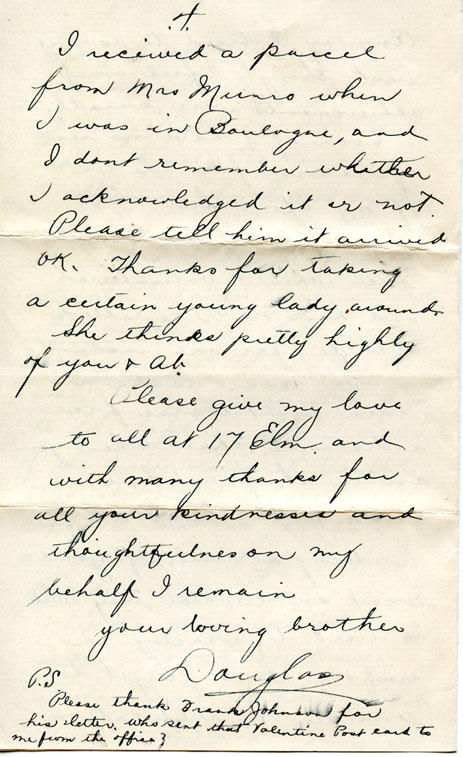 4
I received a parcel
from Mrs Munro when
I was in Boulogne, and
I dont remember whether
I acknowledged it or not.
Please tell him it arrived
OK. Thanks for taking
a certain young lady around.
She thinks pretty highly
of you & Ab.
Please give my love
to all at 17 Elm and
with many thanks for
all your kindnesses and
thoughtfulness on my
behalf I remain
your loving brother
Douglas
P.S
Please thank Frank Johnson for
his letter. Who sent that Valentine Post card to
me from the office?